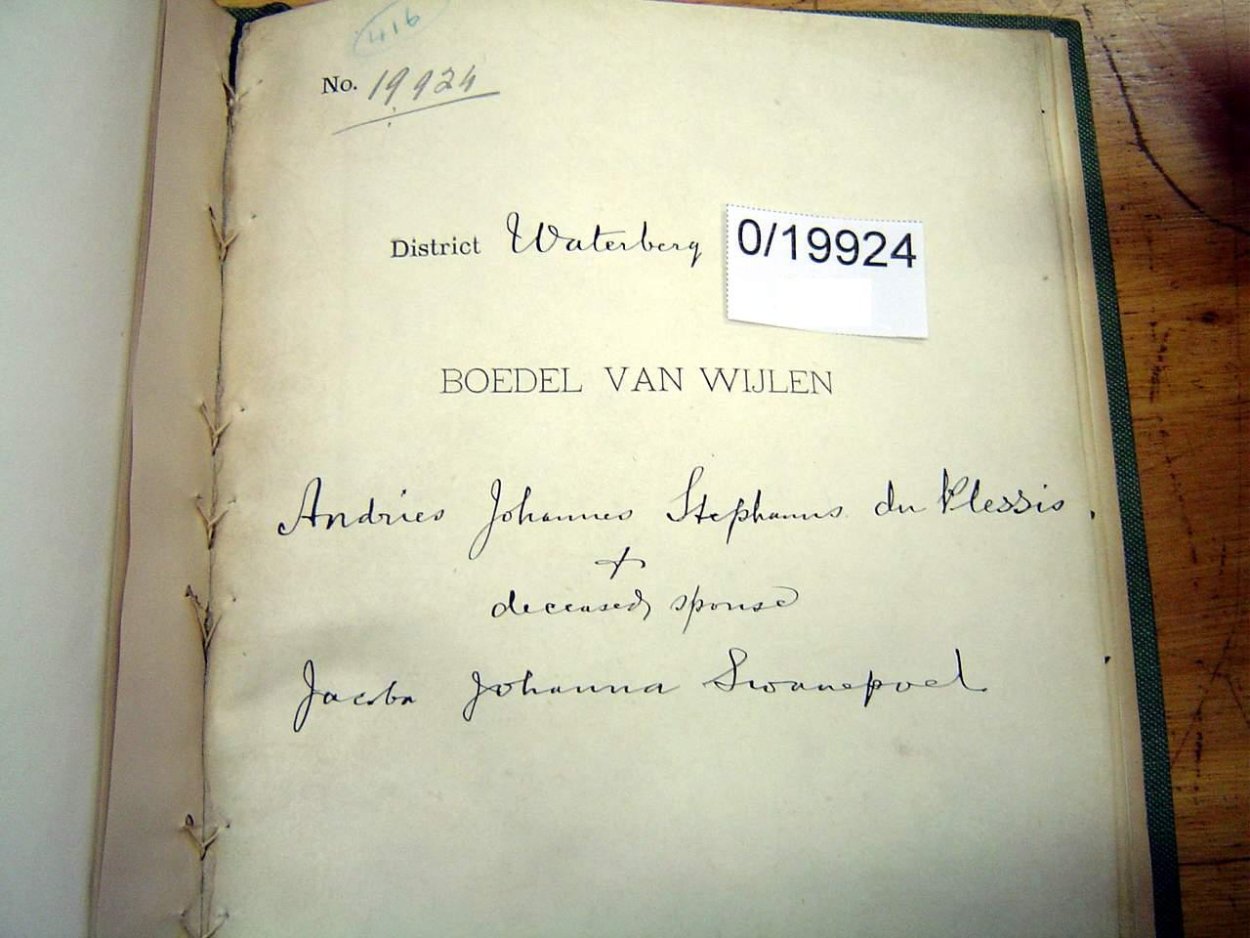 416
No. 19924
District Waterberg
0/19924
BOEDEL VAN WIJLEN
Andries Johannes Stephanus du Plessis.
+
deceased spouse
Jacoba Johanna Swanepoel